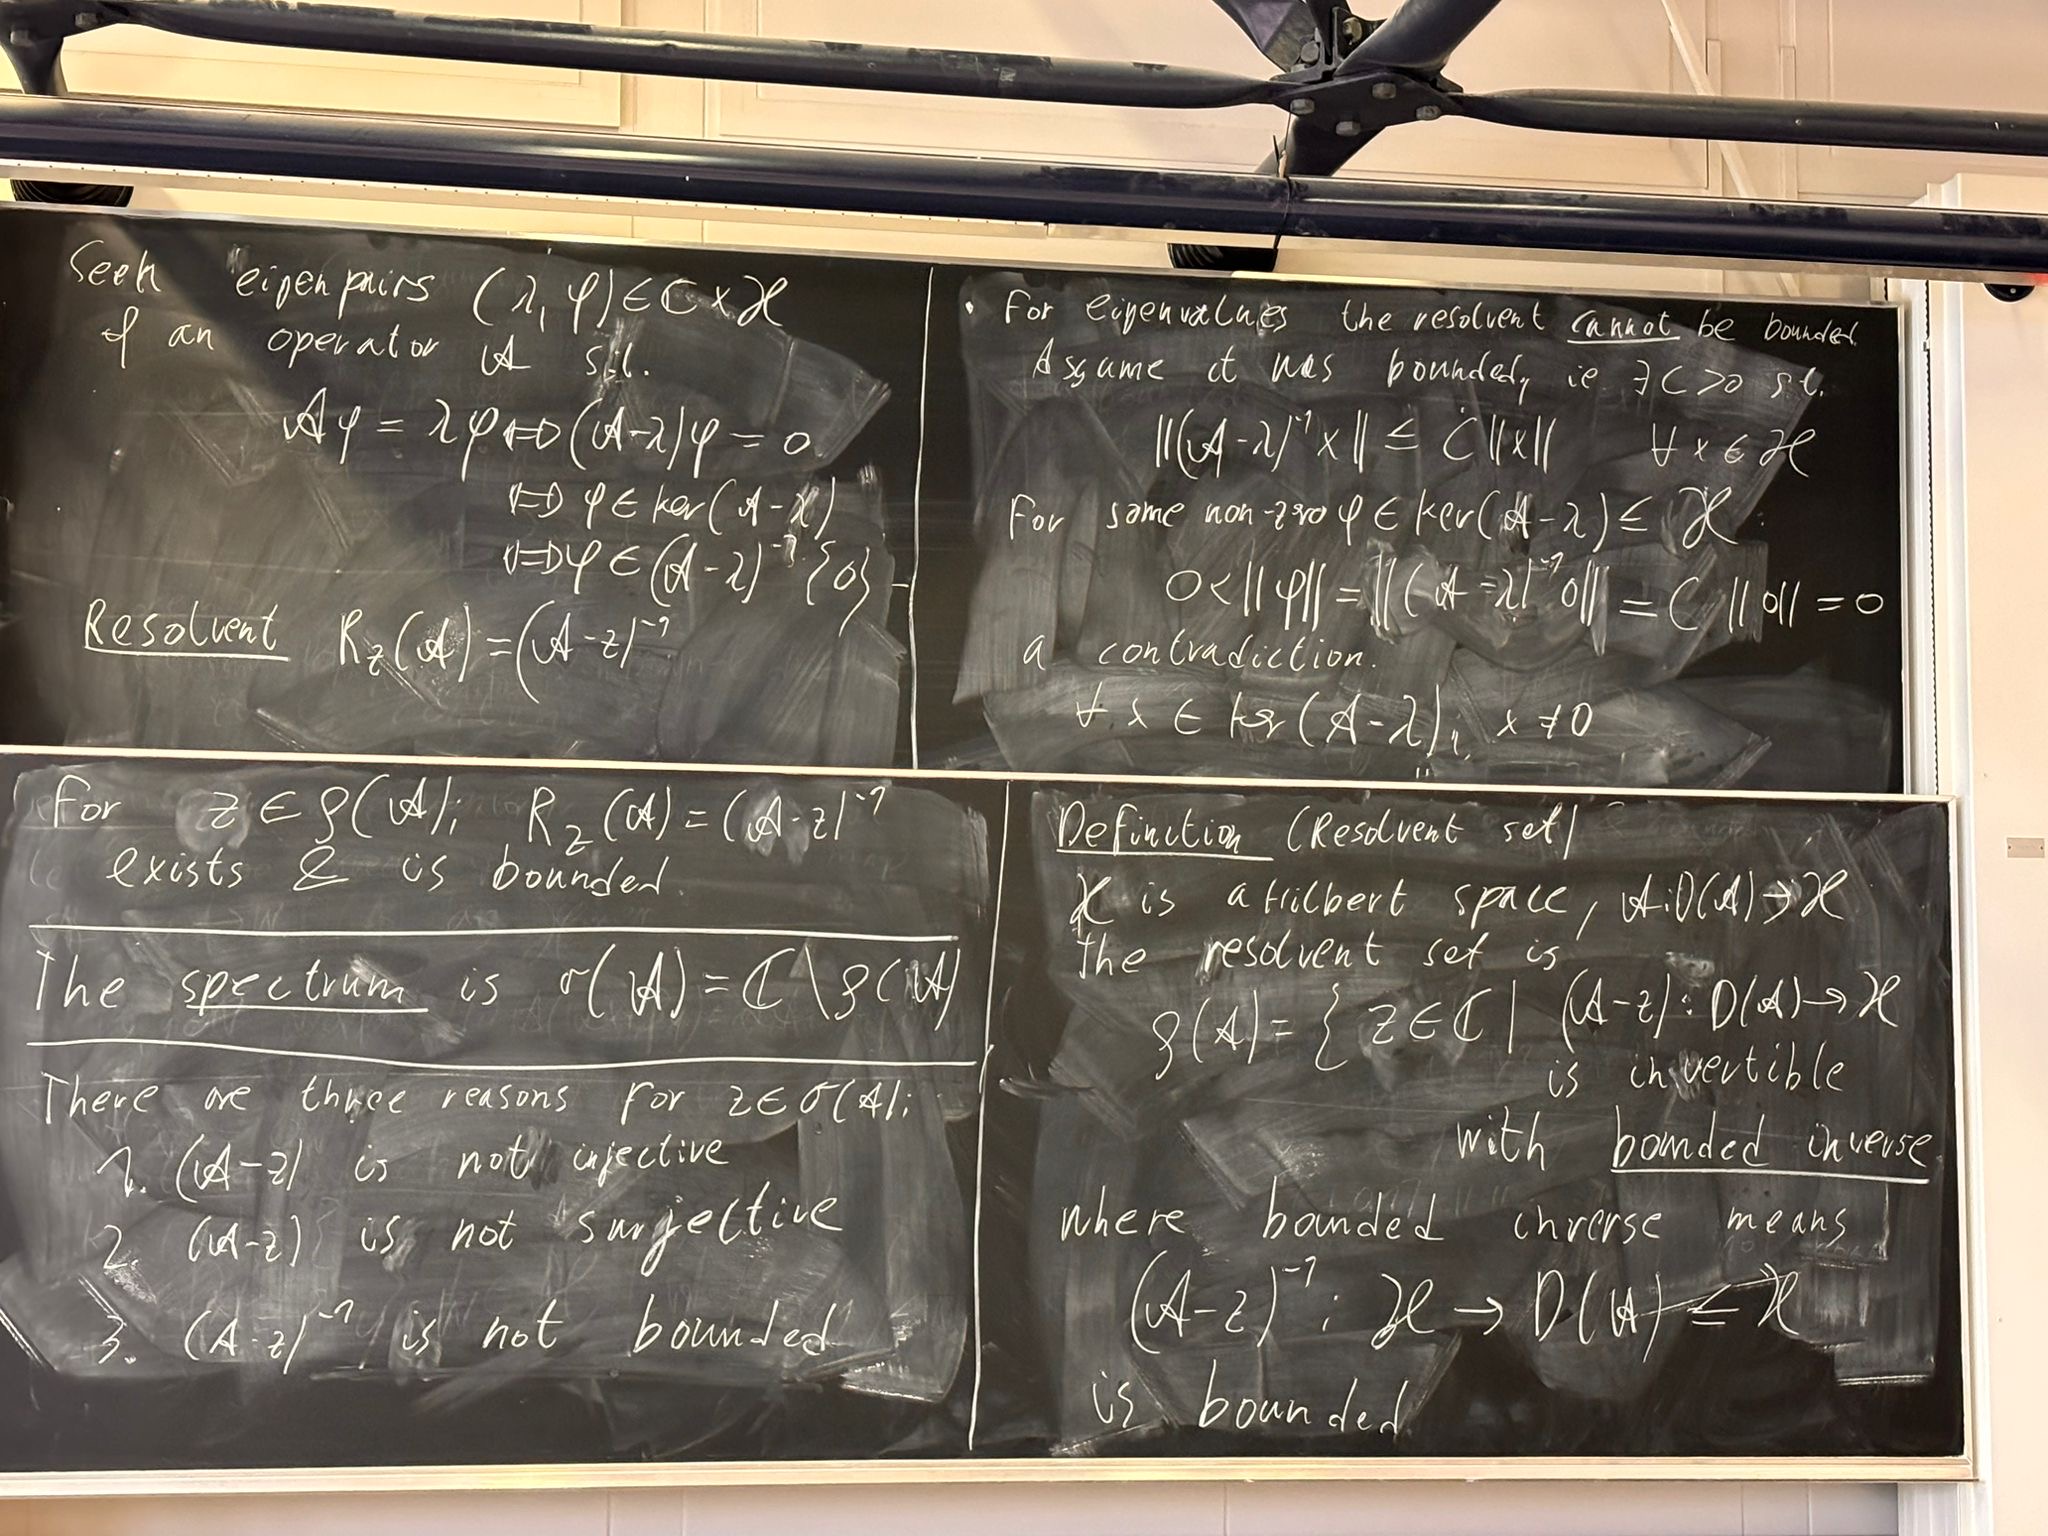 Seek eigenpairs (λ, φ) ∈ ℂ × ℋ
of an operator A s.t.
Aφ = λφ ⇔ (A-λ)φ = 0
⇔ φ ∈ ker(A-λ)
⇔ φ ∈ (A-λ)⁻¹{0}
Resolvent R_z(A) = (A-z)⁻¹
• For eigenvalues the resolvent cannot be bounded.
Assume it was bounded, ie ∃C>0 s.t.
||(A-λ)⁻¹x|| ≤ C||x|| ∀x ∈ ℋ
For some non-zero φ ∈ ker(A-λ) ⊆ ℋ
0 < ||φ|| = ||(A-λ)⁻¹0|| = C||0|| = 0
a contradiction.
∀ x ∈ ker(A-λ), x ≠ 0
For z ∈ ρ(A); R_z(A) = (A-z)⁻¹
exists & is bounded.
The spectrum is σ(A) = ℂ\ρ(A)
There are three reasons for z ∈ σ(A):
1. (A-z) is not injective
2. (A-z) is not surjective
3. (A-z)⁻¹ is not bounded
Definition (Resolvent set)
ℋ is a Hilbert space, A:D(A)→ℋ
The resolvent set is
ρ(A) = { z ∈ ℂ | (A-z): D(A) → ℋ
is invertible
with bounded inverse
where bounded inverse means
(A-z)⁻¹: ℋ → D(A) ⊆ ℋ
is bounded